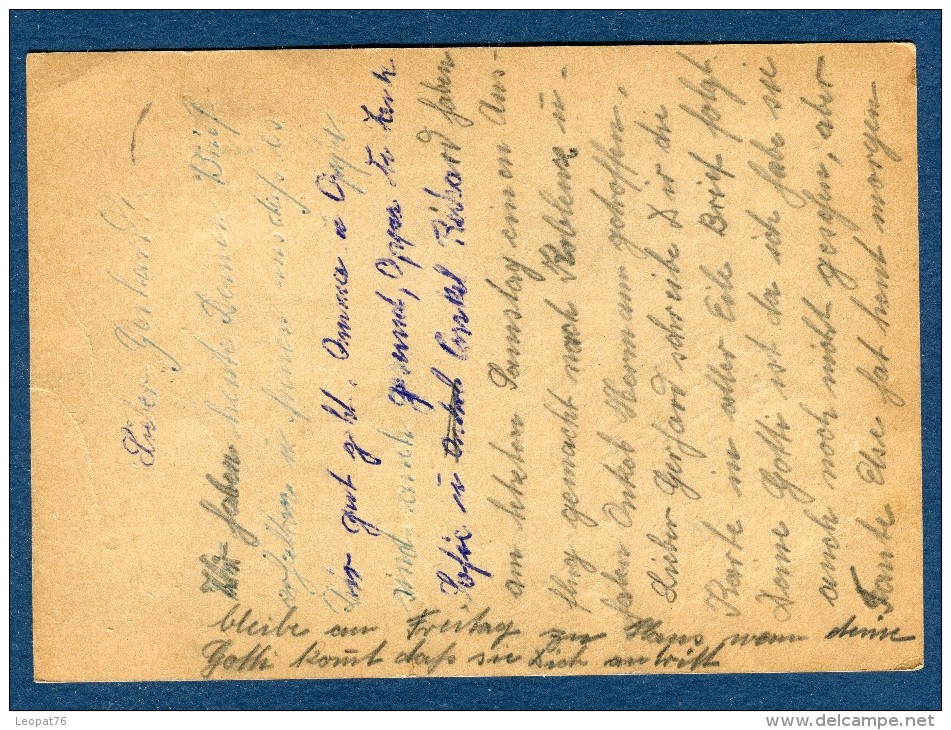 Lieber Gerhard!
Wir haben heute Deinen Brief
erhalten u. freuen uns daß es
Dir gut geht. Omma u Oppa
sind auch gesund, Oppa
Sofie u Onkel Richard haben
am letzten Samstag einen Aus-
flug gemacht nach Koblenz u-
haben Onkel Hermann getroffen.
Lieber Gerhard schreibe Dir die
Karte in aller Eile Brief folgt
Deine Gotti ist da ich habe sie
auch noch nicht gesehen, aber
Tante Else hat heut morgen
bleibe am Freitag zu Haus wenn deine
Gotti komt daß sie Dich antrift
Leopat76
www.delcampe.net